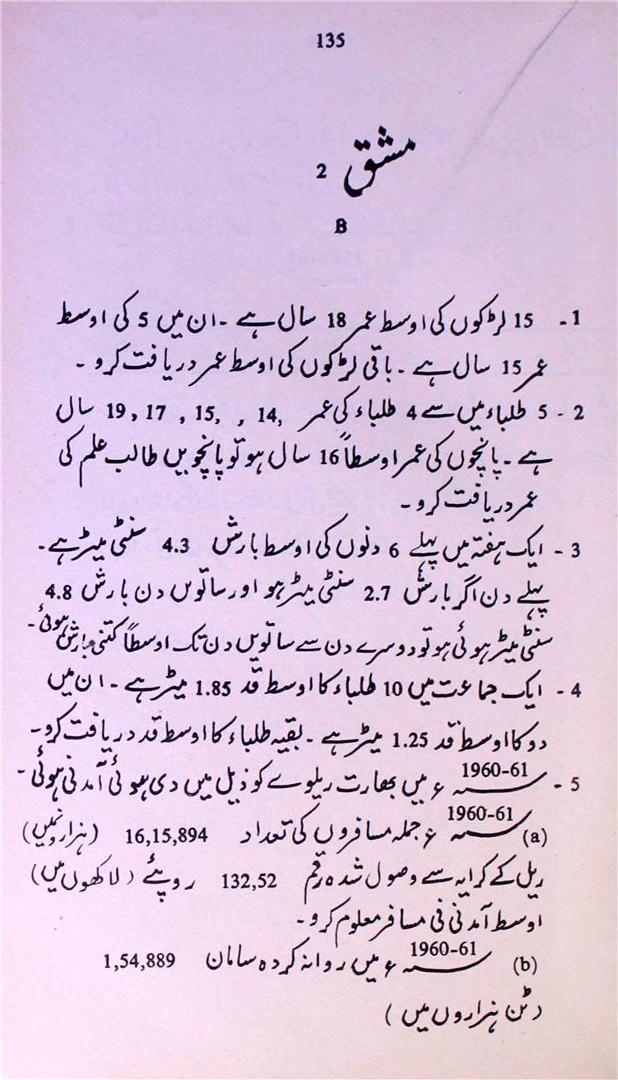 135
مشق 2
B
1۔ 15 لڑکوں کی اوسط عمر 18 سال ہے ۔ ان میں 5 کی اوسط
عمر 15 سال ہے ۔ باقی لڑکوں کی اوسط عمر دریافت کرو ۔
2 - 5 طلباء میں سے 4 طلباء کی عمر 14, , 15, , 17 , 19 سال
ہے ۔ پانچوں کی عمر اوسطاً 16 سال ہو تو پانچویں طالب علم کی
عمر دریافت کرو ۔
3 - ایک ہفتہ میں پہلے 6 دنوں کی اوسط بارش 4.3 سنٹی میٹر ہے۔
پہلے دن اگر بارش 2.7 سنٹی میٹر ہو اور ساتویں دن بارش 4.8
سنٹی میٹر ہوئی ہو تو دوسرے دن سے ساتویں دن تک اوسطاً کتنی بارش ہوئی۔
4 - ایک جماعت میں 10 طلباء کا اوسط قد 1.85 میٹر ہے ۔ ان میں
دو کا اوسط قد 1.25 میٹر ہے ۔ بقیہ طلباء کا اوسط قد دریافت کرو۔
5 - سنہ 1960-61 ء میں بھارت ریلوے کو ذیل میں دی ہوئی آمدنی ہوئی۔
(a) سنہ 1960-61 ء جملہ مسافروں کی تعداد 16,15,894 (ہزارونمیں)
ریل کے کرایہ سے وصول شدہ رقم 132,52 روپئے (لاکھوں میں)
اوسط آمدنی فی مسافر معلوم کرو۔
(b) سنہ 1960-61 ء میں روانہ کردہ سامان 1,54,889
(ٹن ہزاروں میں)